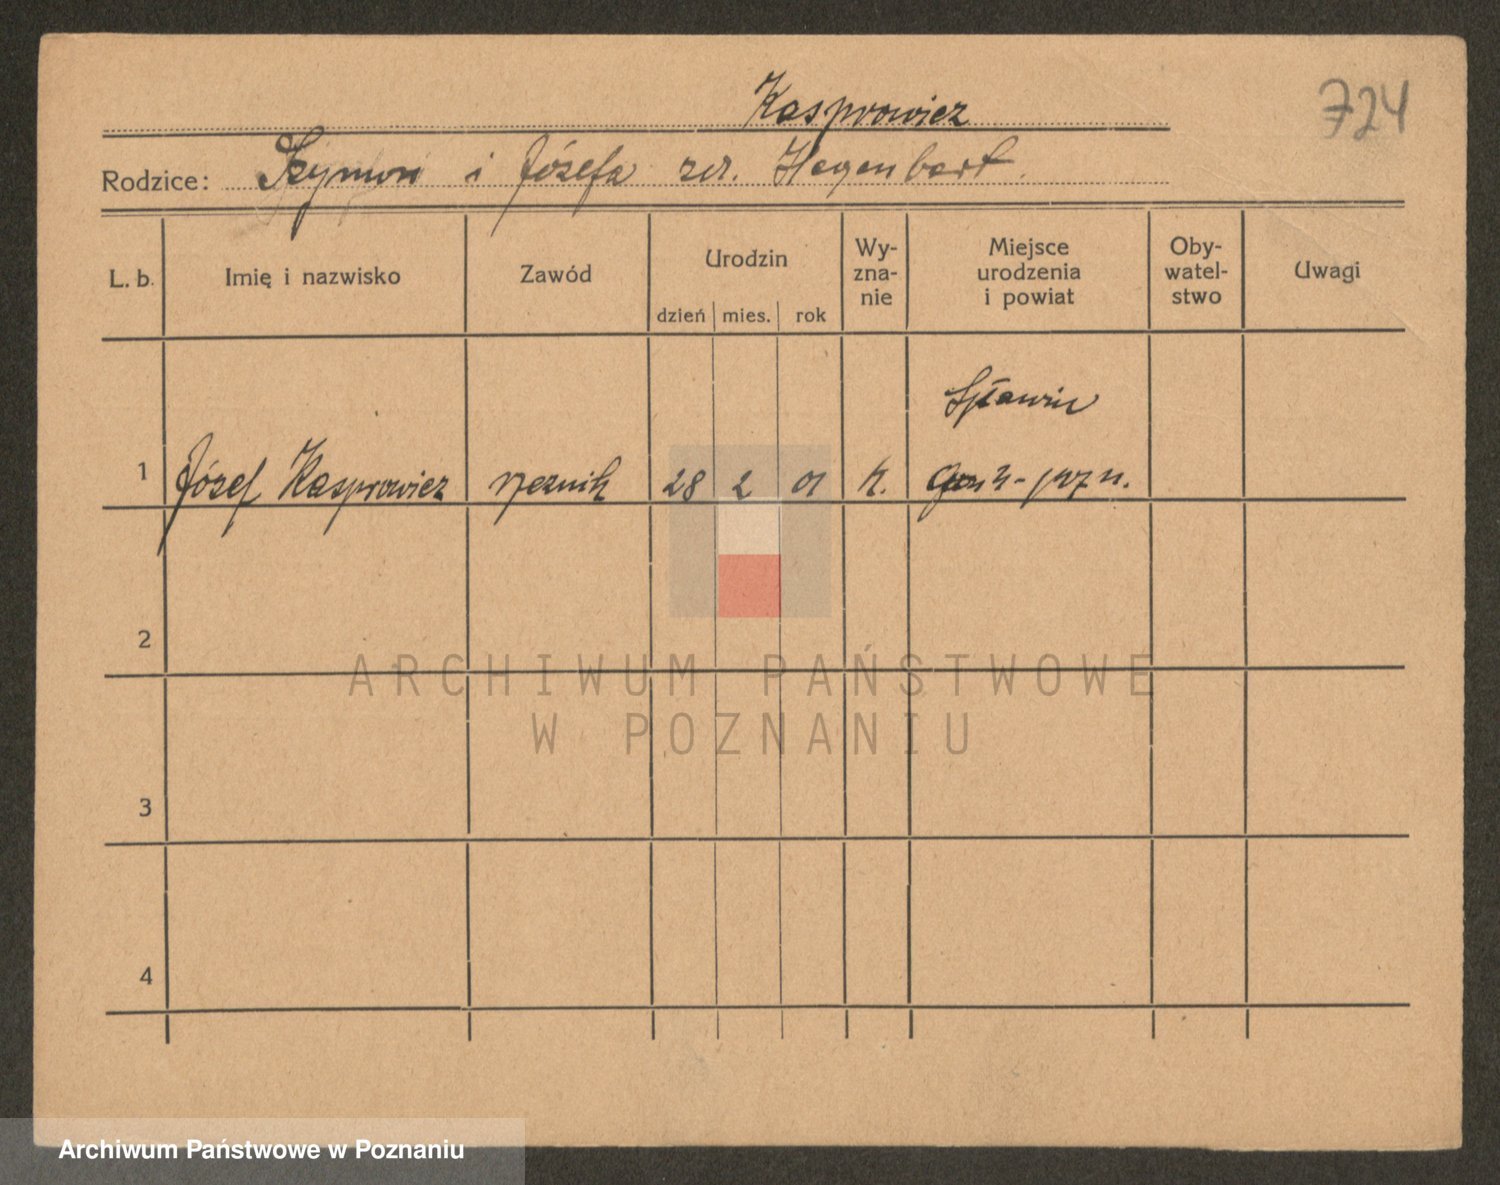 Kasprowicz
724
Rodzice: Szymon i Józefa zd. Hegenbart
L. b. Imię i nazwisko Zawód Urodzin Wy-zna-nie Miejsce urodzenia i powiat Oby-watel-stwo Uwagi
dzień mies. rok
Spławie
1 Józef Kasprowicz rzeznik 28 2 01 k.
2
ARCHIWUM PAŃSTWOWE
W POZNANIU
3
4
Archiwum Państwowe w Poznaniu